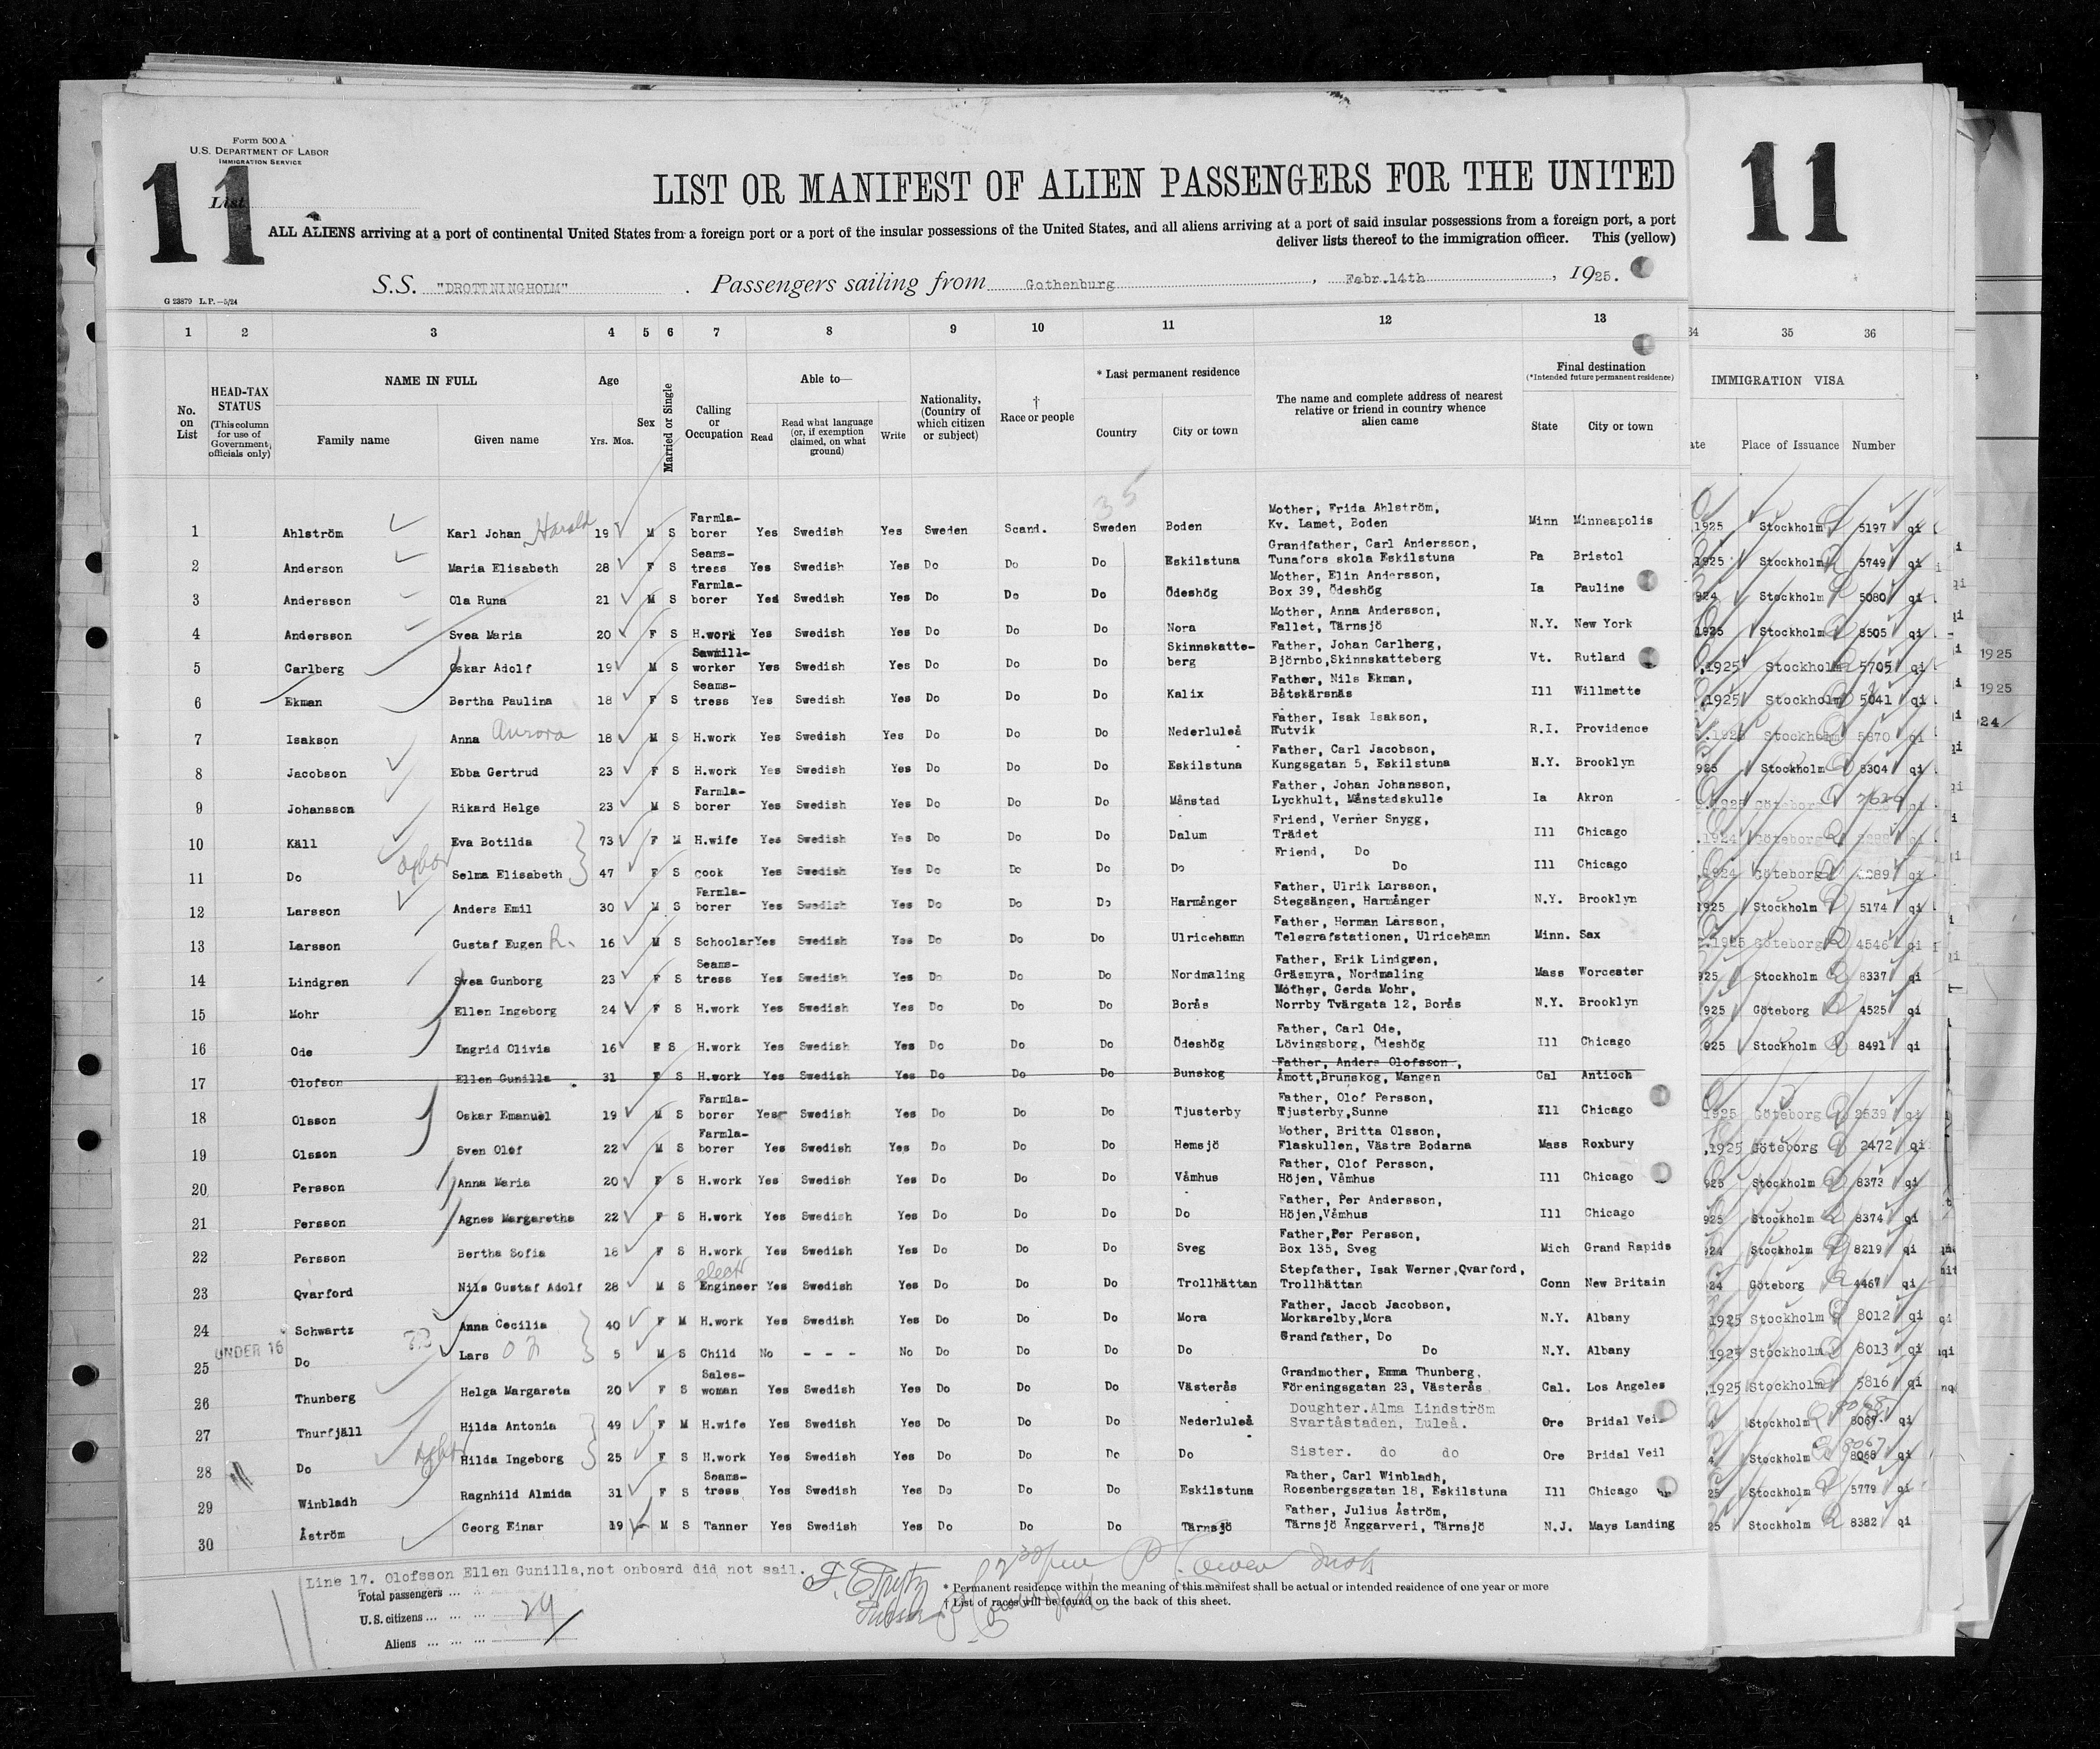 Form 500 A
U.S. DEPARTMENT OF LABOR
IMMIGRATION SERVICE
11
11
List
LIST OR MANIFEST OF ALIEN PASSENGERS FOR THE UNITED
ALL ALIENS arriving at a port of continental United States from a foreign port or a port of the insular possessions of the United States, and all aliens arriving at a port of said insular possessions from a foreign port, a port
deliver lists thereof to the immigration officer. This (yellow)
S.S. "DROTTNINGHOLM" . Passengers sailing from Gothenburg , Febr.14th , 1925.
G 23879 L.P.—5/24
1 2 3 4 5 6 7 8 9 10 11 12 13 34 35 36
No. on List
HEAD-TAX STATUS (This column for use of Government officials only)
NAME IN FULL
Family name Given name
Age Yrs. Mos.
Sex
Married or Single
Calling or Occupation
Able to—
Read Read what language (or, if exemption claimed, on what ground) Write
Nationality, (Country of which citizen or subject)
† Race or people
* Last permanent residence
Country City or town
The name and complete address of nearest relative or friend in country whence alien came
Final destination (*Intended future permanent residence)
State City or town
IMMIGRATION VISA
ate Place of Issuance Number
35
1 Ahlström Karl Johan Harald 19 M S Farmla-borer Yes Swedish Yes Sweden Scand. Sweden Boden Mother, Frida Ahlström, Kv. Lamet, Boden Minn Minneapolis 1925 Stockholm 5197 qi
2 Anderson Maria Elisabeth 28 F S Seams-tress Yes Swedish Yes Do Do Do Eskilstuna Grandfather, Carl Andersson, Tunafors skola Eskilstuna Pa Bristol 1925 Stockholm 5749 qi
3 Andersson Ola Runa 21 M S Farmla-borer Yes Swedish Yes Do Do Do Ödeshög Mother, Elin Andersson, Box 39, Ödeshög Ia Pauline 924 Stockholm 5080 qi
4 Andersson Svea Maria 20 F S H.work Yes Swedish Yes Do Do Do Nora Mother, Anna Andersson, Fallet, Tärnsjö N.Y. New York 1925 Stockholm 8505 qi
5 Carlberg Oskar Adolf 19 M S Sawmill-worker Yes Swedish Yes Do Do Do Skinnskatte-berg Father, Johan Carlberg, Björnbo,Skinnskatteberg Vt. Rutland .1925 Stockholm 5705 qi
6 Ekman Bertha Paulina 18 F S Seams-tress Yes Swedish Yes Do Do Do Kalix Father, Nils Ekman, Båtskärsnäs Ill Willmette .1925 Stockholm 5041 qi
7 Isakson Anna Aurora 18 M S H.work Yes Swedish Yes Do Do Do Nederluleå Father, Isak Isakson, Rutvik R.I. Providence .1925 Stockholm 5870 qi
8 Jacobson Ebba Gertrud 23 F S H.work Yes Swedish Yes Do Do Do Eskilstuna Father, Carl Jacobson, Kungsgatan 5, Eskilstuna N.Y. Brooklyn 925 Stockholm 8304 qi
9 Johansson Rikard Helge 23 M S Farmla-borer Yes Swedish Yes Do Do Do Månstad Father, Johan Johansson, Lyckhult, Månstadskulle Ia Akron 1925 Göteborg qi
10 Käll Eva Botilda 73 F M H.wife Yes Swedish Yes Do Do Do Dalum Friend, Verner Snygg, Trädet Ill Chicago .1924 Göteborg qi
11 Do Selma Elisabeth 47 F S cook Yes Swedish Yes Do Do Do Do Friend, Do Do Ill Chicago .1924 Göteborg qi
12 Larsson Anders Emil 30 M S Farmla-borer Yes Swedish Yes Do Do Do Harmånger Father, Ulrik Larsson, Stegsängen, Harmånger N.Y. Brooklyn 1925 Stockholm 5174 qi
13 Larsson Gustaf Eugen R. 16 M S Schoolar Yes Swedish Yes Do Do Do Ulricehamn Father, Herman Larsson, Telegrafstationen, Ulricehamn Minn. Sax .1925 Göteborg 4546 qi
14 Lindgren Svea Gunborg 23 F S Seams-tress Yes Swedish Yes Do Do Do Nordmaling Father, Erik Lindgren, Gräsmyra, Nordmaling Mass Worcester 925 Stockholm 8337 qi
15 Mohr Ellen Ingeborg 24 F S H.work Yes Swedish Yes Do Do Do Borås Mother, Gerda Mohr, Norrby Tvärgata 12, Borås N.Y. Brooklyn 925 Göteborg 4525 qi
16 Ode Ingrid Olivia 16 F S H.work Yes Swedish Yes Do Do Do Ödeshög Father, Carl Ode, Lövingsborg, Ödeshög Ill Chicago 925 Stockholm 8491 qi
17 Olofson Ellen Gunilla 31 F S H.work Yes Swedish Yes Do Do Do Bunskog Father, Anders Olofsson, Åmott,Brunskog, Mangen Cal Antioch
18 Olsson Oskar Emanuel 19 M S Farmla-borer Yes Swedish Yes Do Do Do Tjusterby Father, Olof Persson, Tjusterby,Sunne Ill Chicago 1925 Göteborg 2539 qi
19 Olsson Sven Olof 22 M S Farmla-borer Yes Swedish Yes Do Do Do Hemsjö Mother, Britta Olsson, Flaskullen, Västra Bodarna Mass Roxbury .1925 Göteborg 2472 qi
20 Persson Anna Maria 20 F S H.work Yes Swedish Yes Do Do Do Våmhus Father, Olof Persson, Höjen, Våmhus Ill Chicago 925 Stockholm 8373 qi
21 Persson Agnes Margaretha 22 F S H.work Yes Swedish Yes Do Do Do Do Father, Per Andersson, Höjen,Våmhus Ill Chicago 925 Stockholm 8374 qi
22 Persson Bertha Sofia 18 F S H.work Yes Swedish Yes Do Do Do Sveg Father,Per Persson, Box 135, Sveg Mich Grand Rapids 924 Stockholm 8219 qi
23 Qvarford Nils Gustaf Adolf 28 M S electr Engineer Yes Swedish Yes Do Do Do Trollhättan Stepfather, Isak Werner,Qvarford, Trollhättan Conn New Britain 24 Göteborg 4467 qi
24 Schwartz Anna Cecilia 40 F M H.work Yes Swedish Yes Do Do Do Mora Father, Jacob Jacobson, Morkarelby,Mora N.Y. Albany 1925 Stockholm 8012 qi
UNDER 16
25 Do Lars 5 M S Child No - - - No Do Do Do Do Grandfather, Do Do N.Y. Albany .1925 Stockholm 8013 qi
26 Thunberg Helga Margareta 20 F S Sales-woman Yes Swedish Yes Do Do Do Västerås Grandmother, Emma Thunberg, Föreningsgatan 23, Västerås Cal. Los Angeles .1925 Stockholm 5816 qi
27 Thurfjäll Hilda Antonia 49 F M H.wife Yes Swedish Yes Do Do Do Nederluleå Doughter.Alma Lindström Svartåstaden, Luleå. Ore Bridal Veil 4 Stockholm 8067 qi
28 Do Hilda Ingeborg 25 F S H.work Yes Swedish Yes Do Do Do Do Sister. do do Ore Bridal Veil 4 Stockholm 8068 8067 qi
29 Winbladh Ragnhild Almida 31 F S Seams-tress Yes Swedish Yes Do Do Do Eskilstuna Father, Carl Winbladh, Rosenbergsgatan 18, Eskilstuna Ill Chicago 25 Stockholm 5779 qi
30 Åström Georg Einar 19 M S Tanner Yes Swedish Yes Do Do Do Tärnsjö Father, Julius Åström, Tärnsjö Änggarveri, Tärnsjö N.J. Mays Landing 25 Stockholm 8382 qi
1925
1925
24
Line 17. Olofsson Ellen Gunilla,not onboard did not sail.
Total passengers ...
U.S. citizens ... ... ... 29
Aliens ... ... ...
* Permanent residence within the meaning of this manifest shall be actual or intended residence of one year or more
† List of races will be found on the back of this sheet.